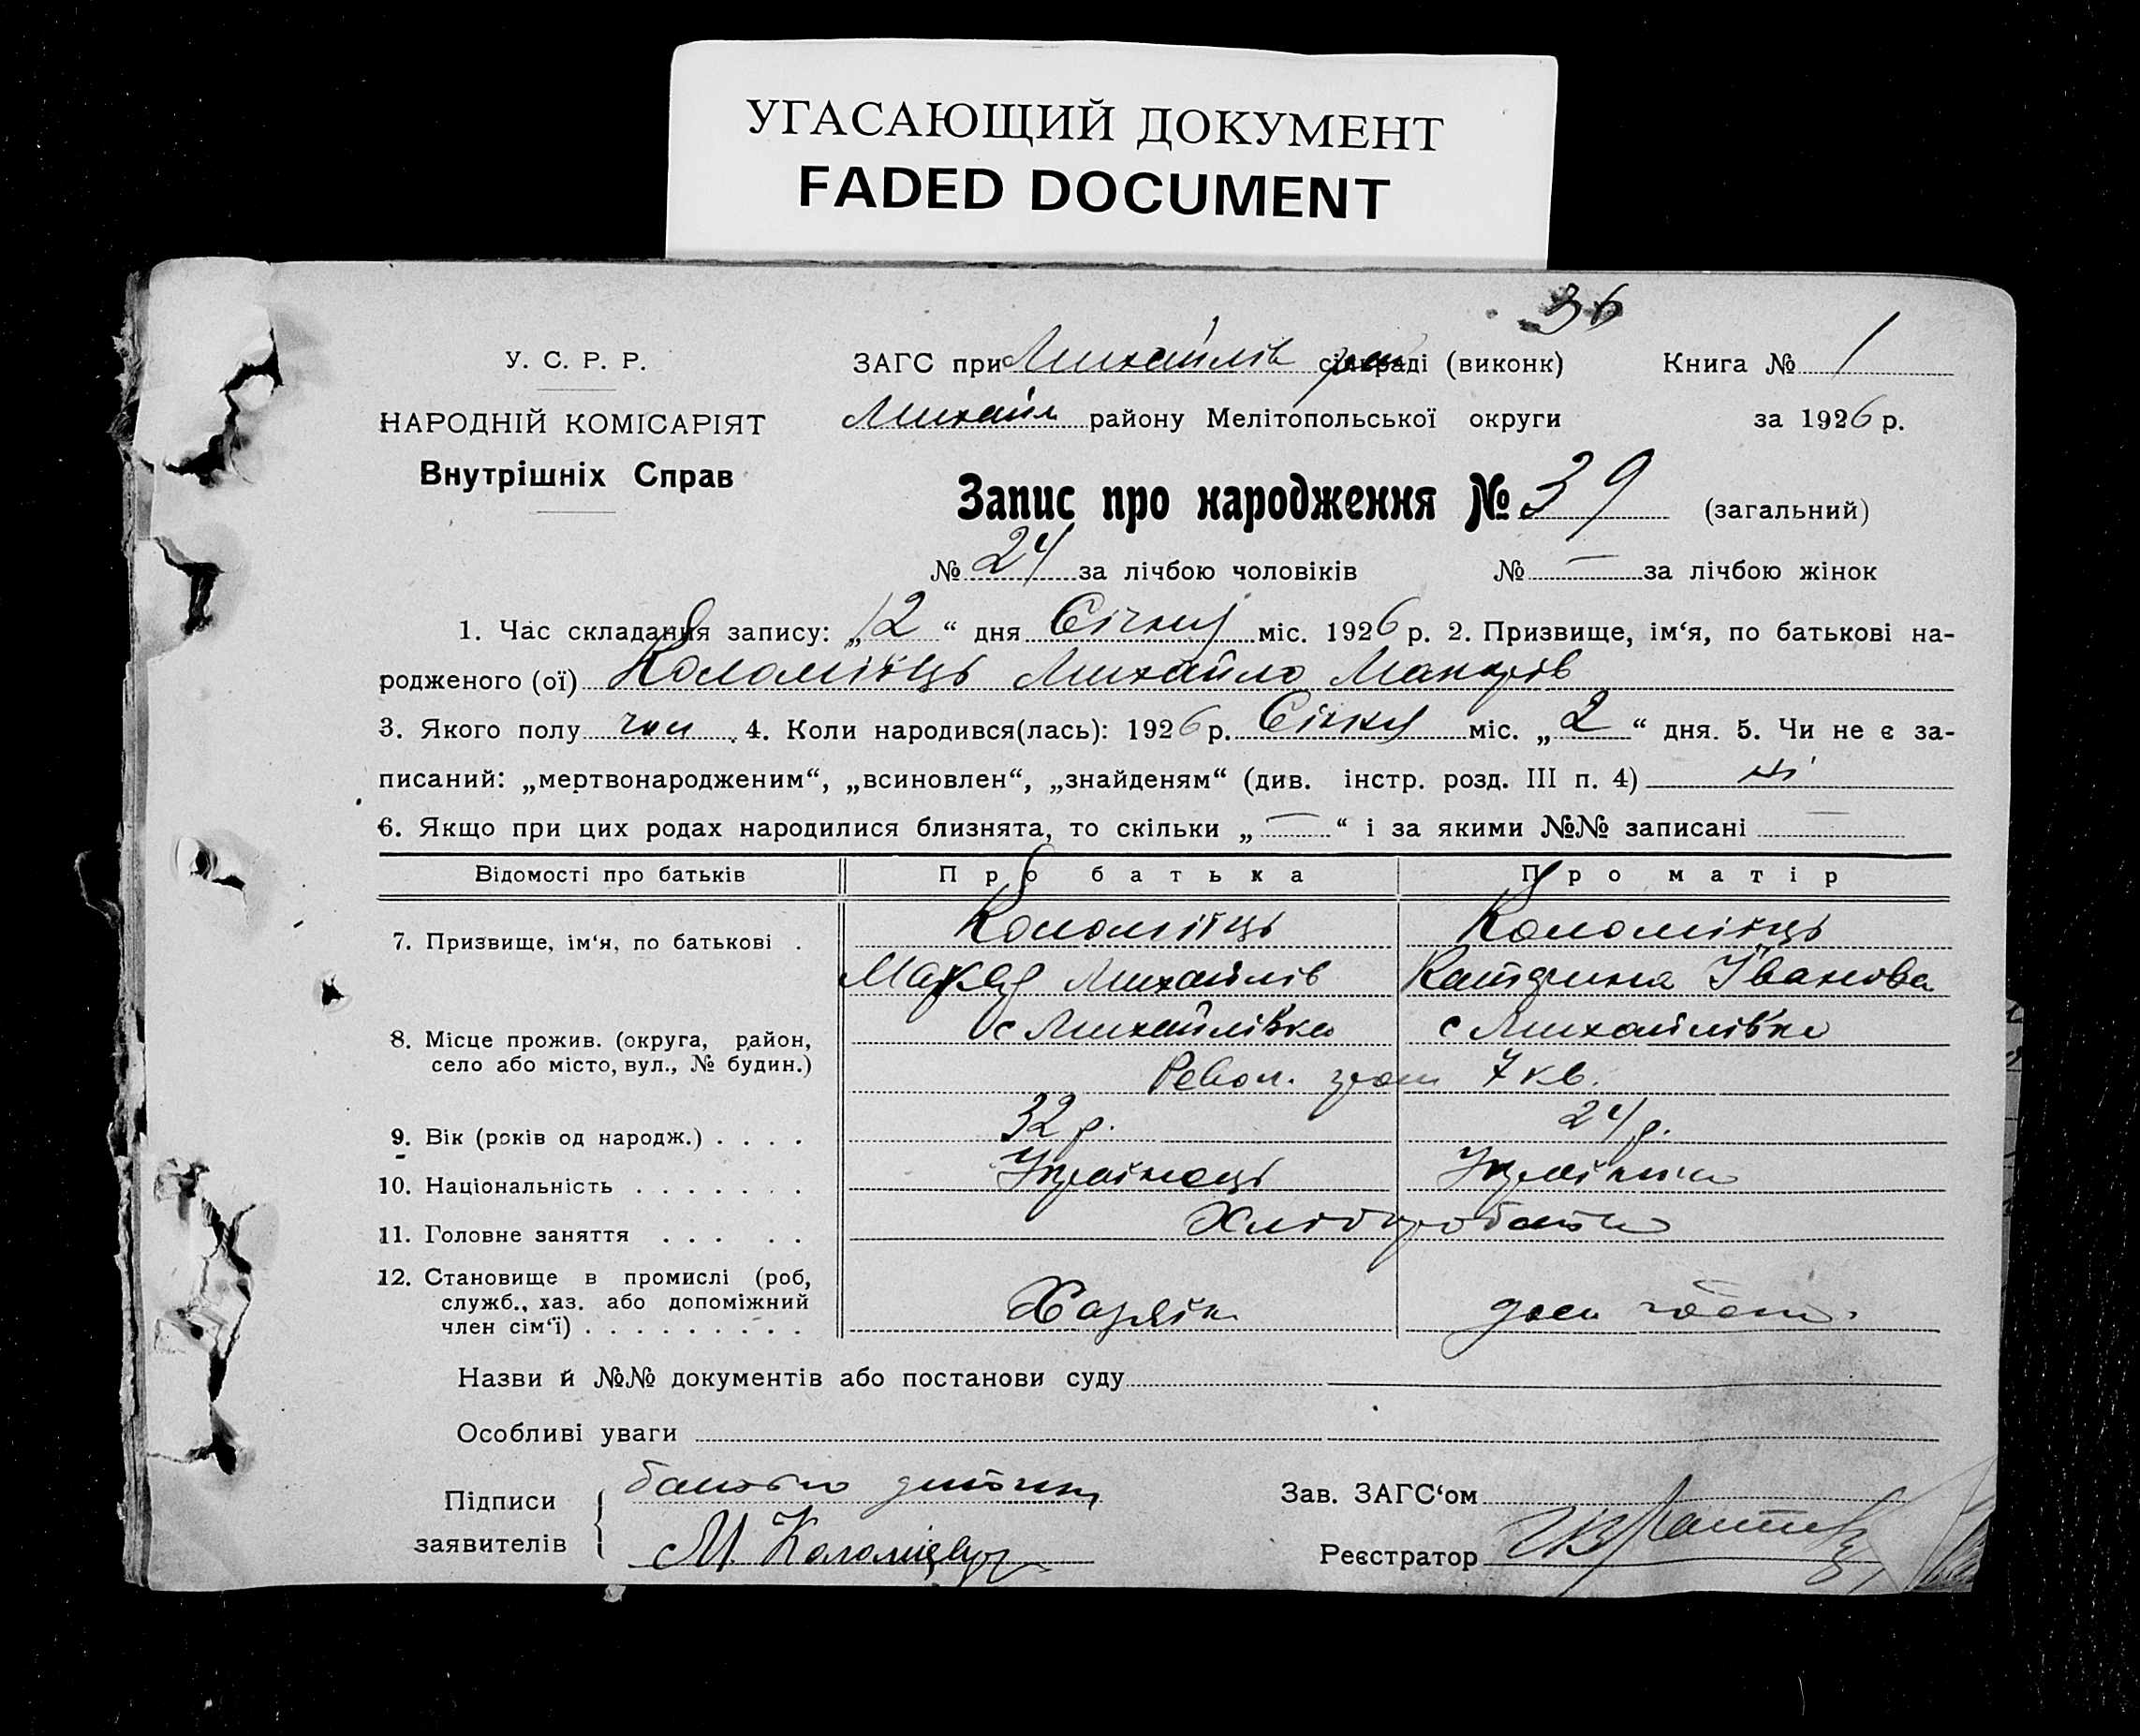 УГАСАЮЩИЙ ДОКУМЕНТ
FADED DOCUMENT
36
У. С. Р. Р.
ЗАГС при Михайлів сільраді (виконк) Книга № 1
НАРОДНІЙ КОМІСАРІЯТ
Михайл району Мелітопольської округи за 1926 р.
Внутрішніх Справ
Запис про народження № 39 (загальний)
№ 24 за лічбою чоловіків № — за лічбою жінок
1. Час складання запису: „12“ дня Січня міс. 1926 р. 2. Призвище, ім‘я, по батькові на-
родженого (ої) Коломієць Михайло Макарів
3. Якого полу чол. 4. Коли народився(лась): 1926 р. Січня міс. „2“ дня. 5. Чи не є за-
писаний: „мертвонародженим“, „всиновлен“, „знайденям“ (див. інстр. розд. III п. 4) ні
6. Якщо при цих родах народилися близнята, то скільки „—“ і за якими №№ записані —
Відомості про батьків Про батька Про матір
7. Призвище, ім‘я, по батькові . Коломієць Коломієць
Макар Михайлів Катерина Іванова
8. Місце прожив. (округа, район, с Михайлівка с Михайлівка
село або місто, вул., № будин.)Револ. 7 кв.
9. Вік (років од народж.) . . . . 32 р. 24 р.
10. Національність . . . . . . . Українець Українка
11. Головне заняття . . . . . Хліборобство
12. Становище в промислі (роб,
служб., хаз. або допоміжний Хазяїн
член сім‘ї) . . . . . . . . .
Назви й №№ документів або постанови суду
Особливі уваги
Підписи батько дитини Зав. ЗАГС‘ом
заявителів М. Коломієць Реєстратор